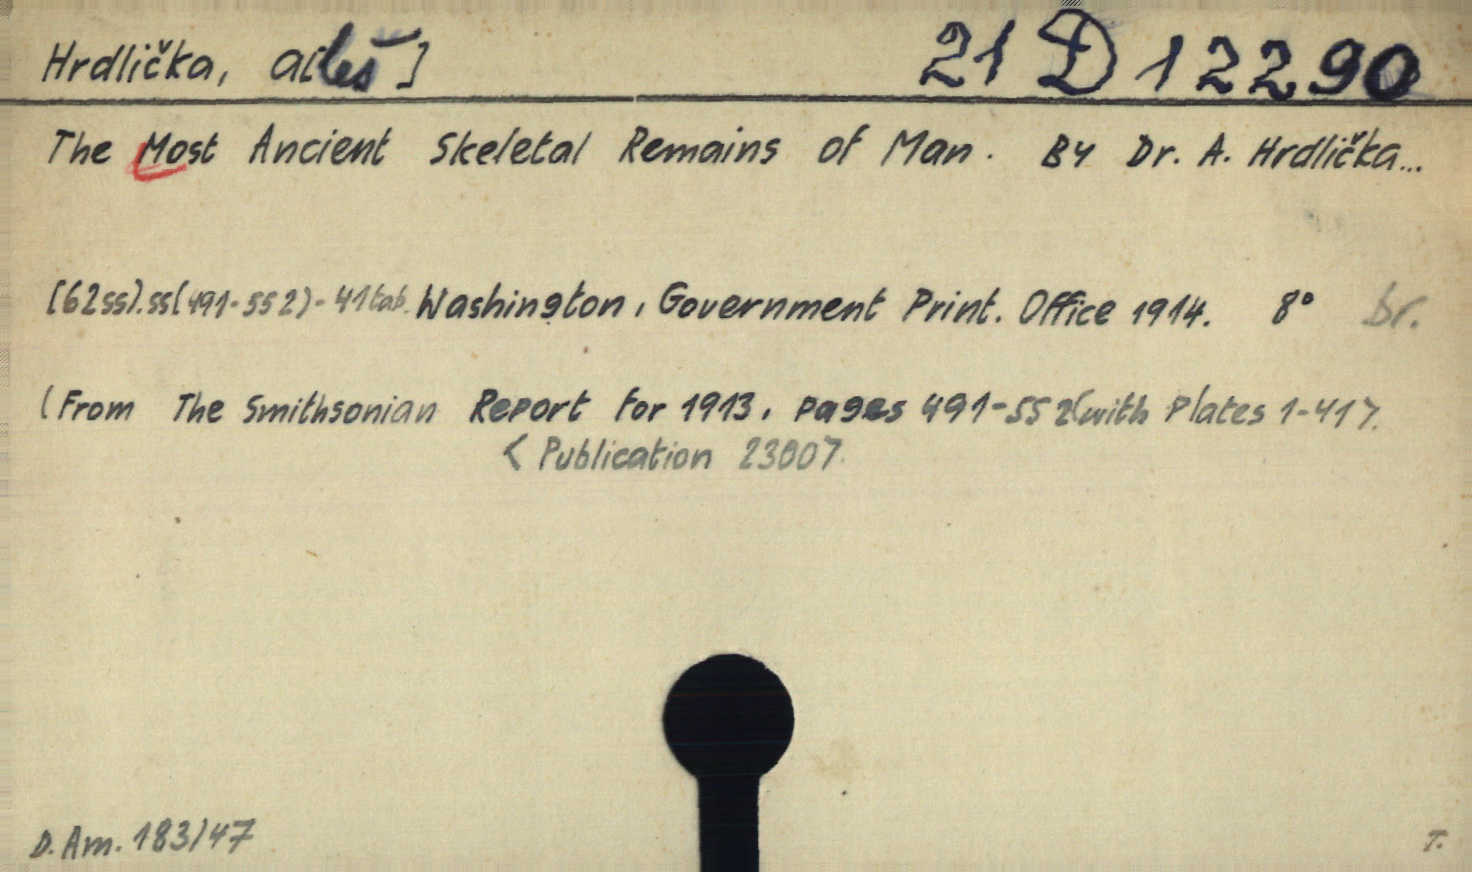 Hrdlička, A[leš] 21 D 12290
The Most Ancient Skeletal Remains of Man. By Dr. A. Hrdlička...
(62ss).ss(491-552)-41tab. Washington, Government Print. Office 1914. 8° br.
(From The Smithsonian Report for 1913, pages 491-552(with Plates 1-41).
< Publication 2300>.
D. Am. 183/47
T.